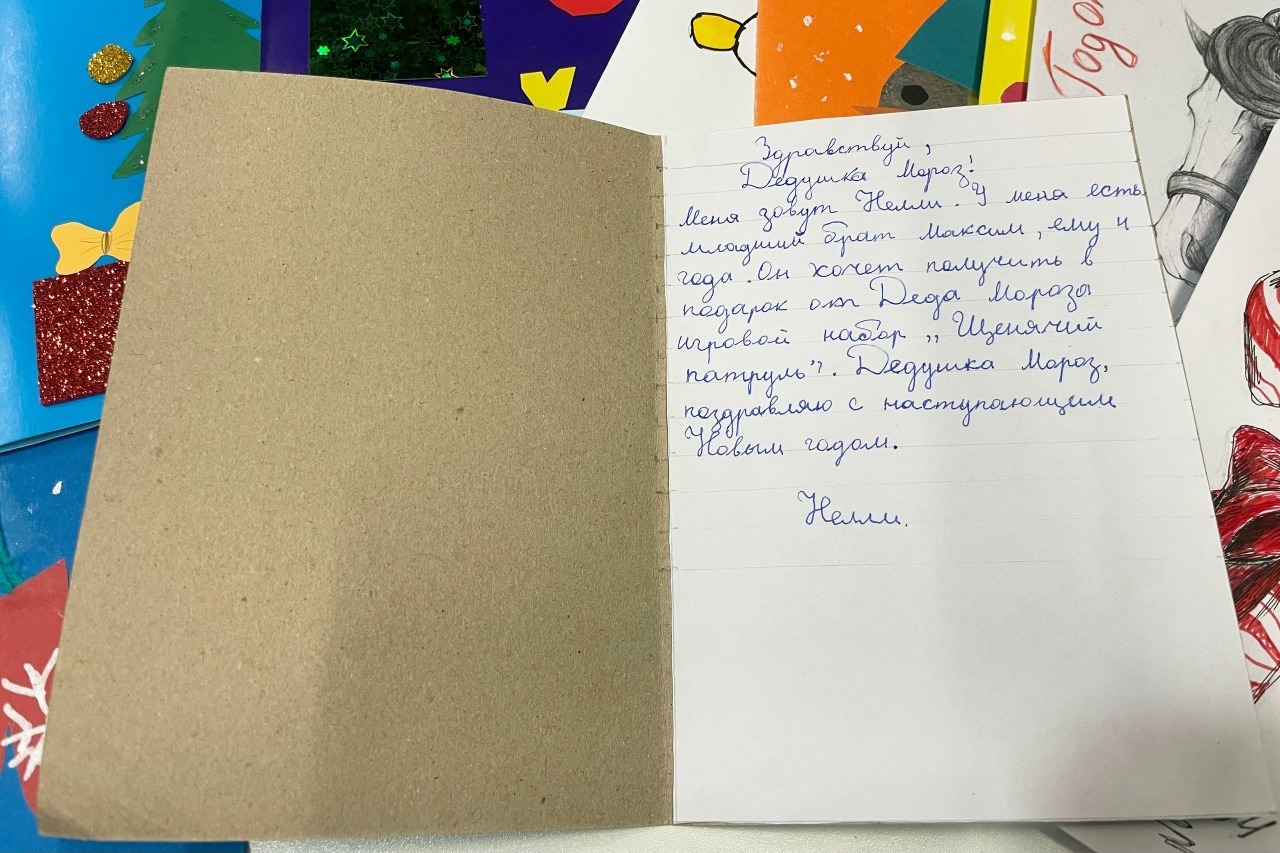 Год о
Здравствуй,
Дедушка Мороз!
Меня зовут Нелли. У меня есть
младший брат Максим, ему 4
года. Он хочет получить в
подарок от Деда Мороза
игровой набор „Щенячий
патруль”. Дедушка Мороз,
поздравляю с наступающим
Новым годом.
Нелли.